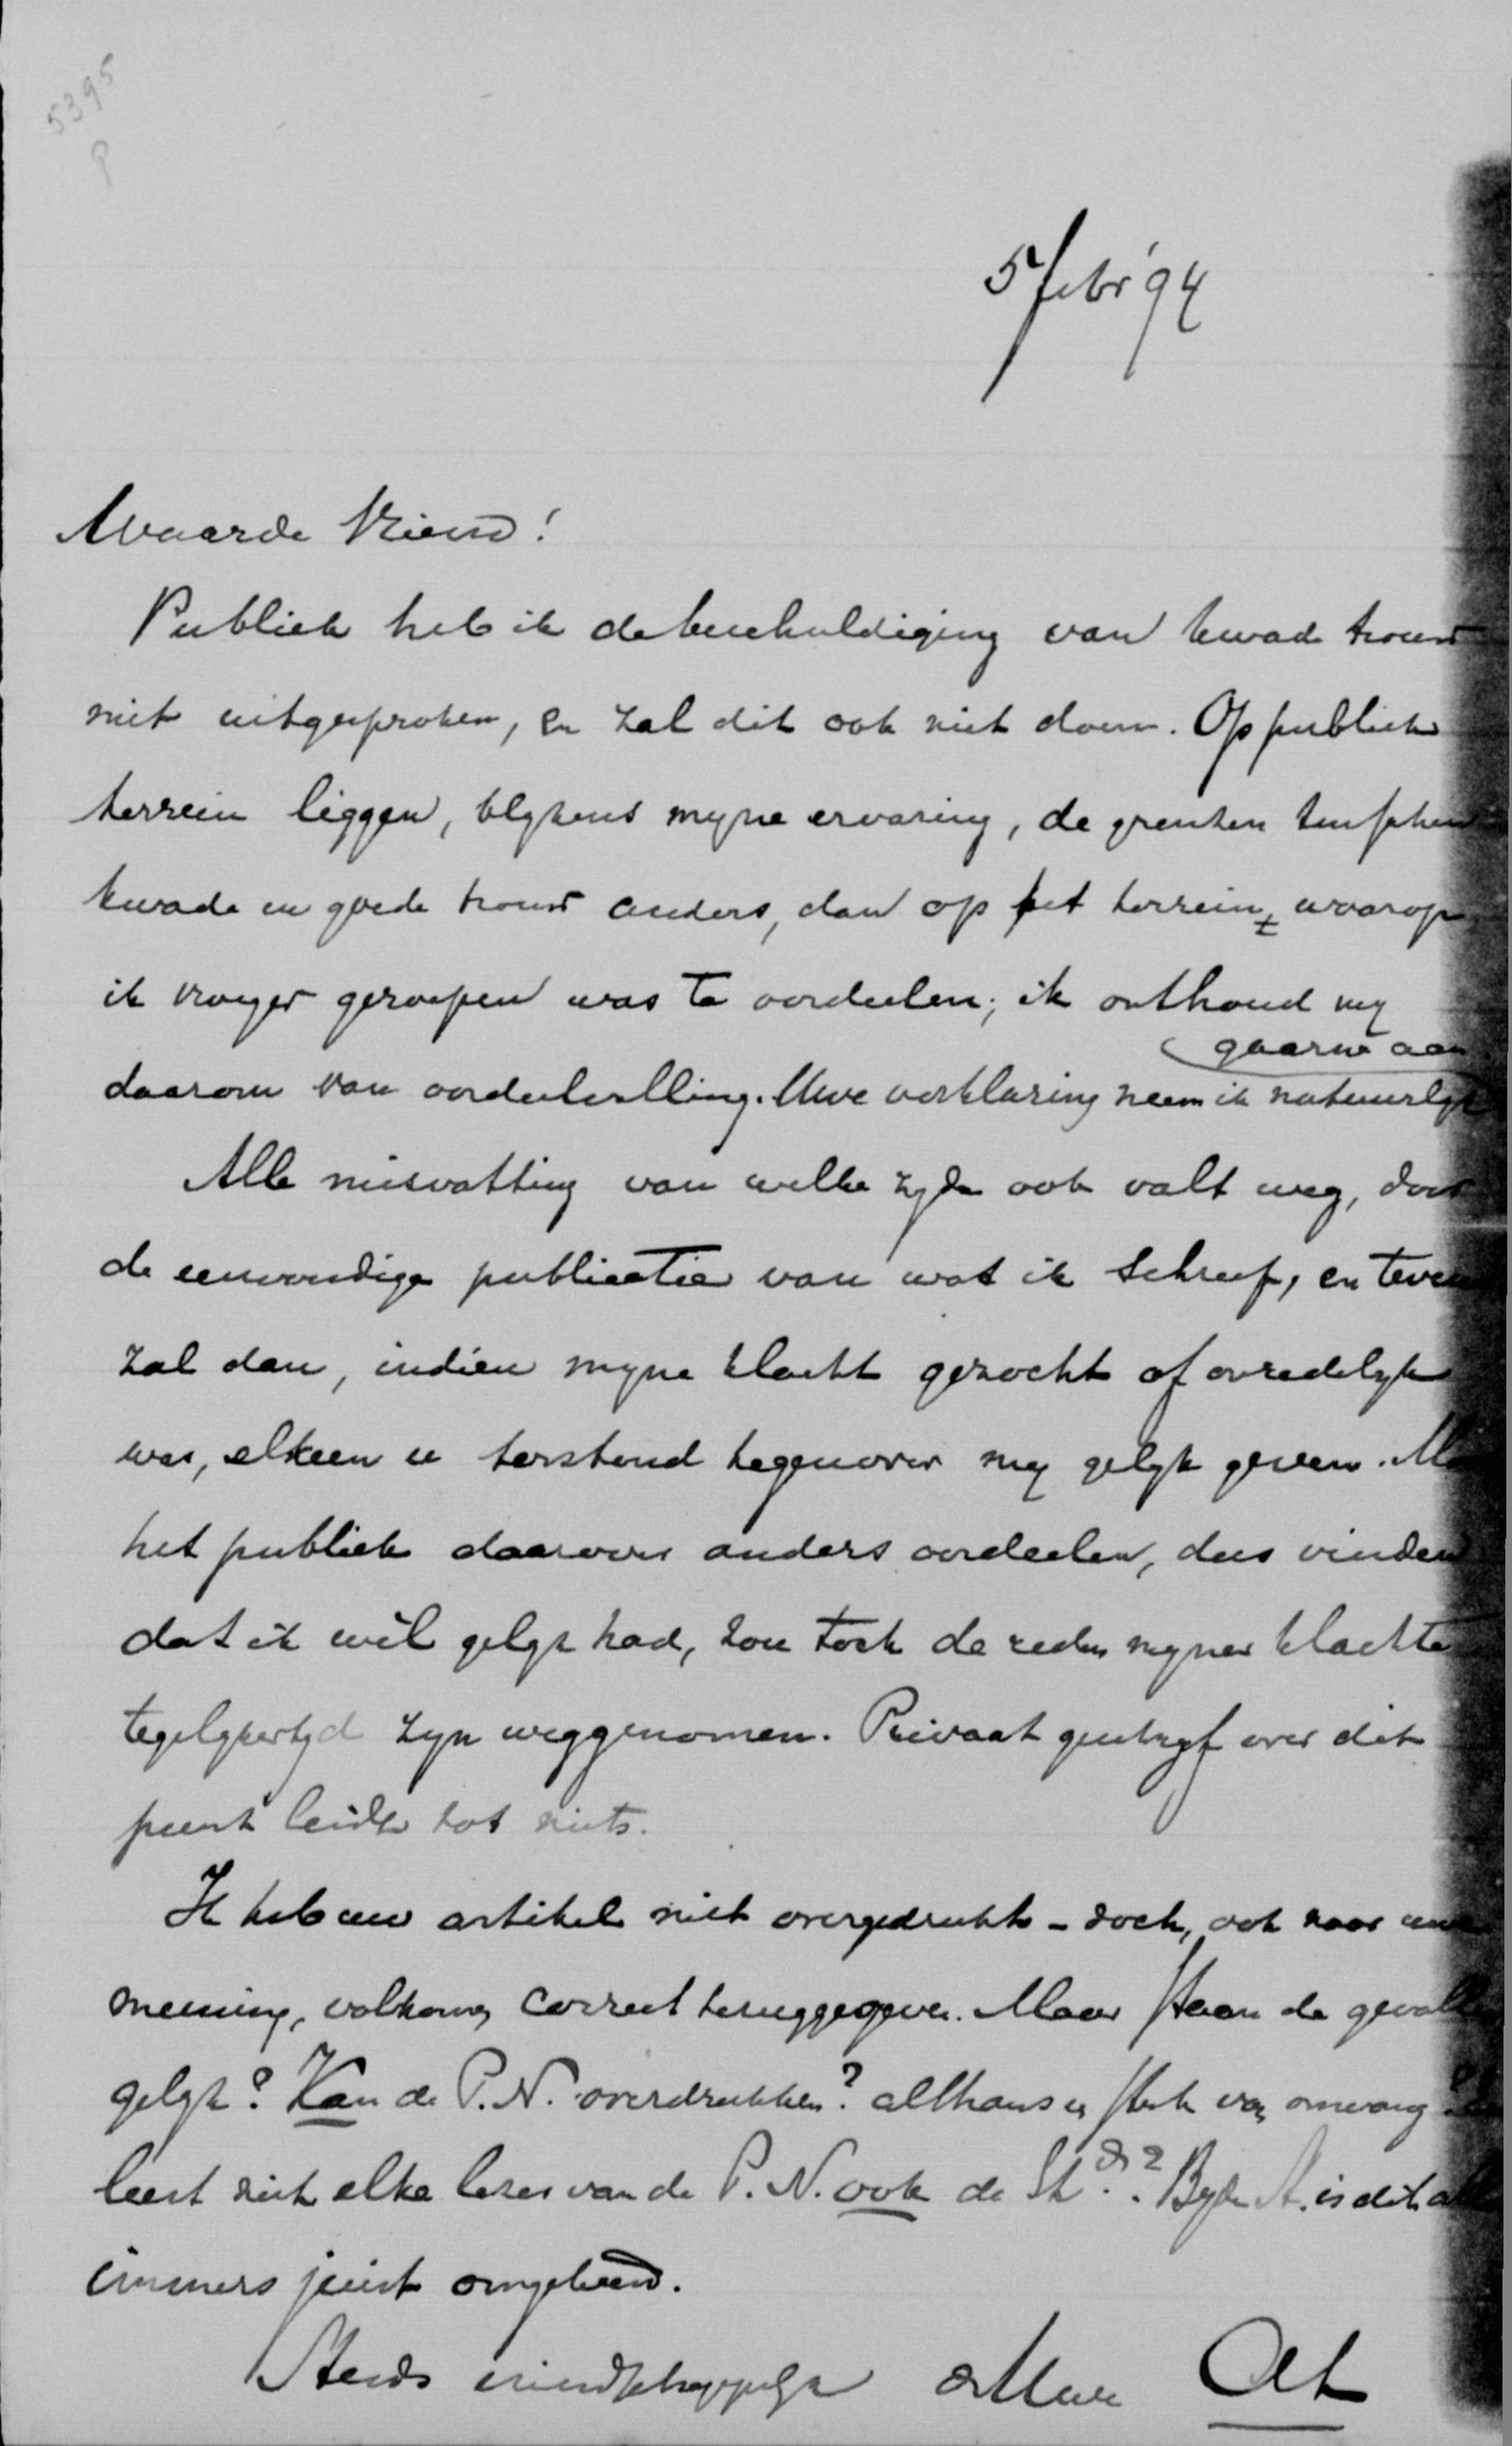 5395
P
5 febr '94
Waarde Vriend!
Publiek heb ik de beschuldiging van kwade trouw
niet uitgesproken, en zal dit ook niet doen. Op publiek
terrein liggen, blykens myne ervaring, de grenzen tusschen
kwade en goede trouw anders, dan op het terrein, waarop
ik vroeger geroepen was te oordeelen; ik onthoud my
gaarne aan
daarom van oordeelvelling. Uwe verklaring neem ik natuurlyk
Alle misvatting van welke zyde ook valt weg, door
de eenvoudige publicatie van wat ik schreef, en tevens
zal dan, indien myne klacht gezocht of onredelyk
was, elkeen u terstond tegenover my gelyk geven. Mocht
het publiek daarover anders oordeelen, dus vinden
dat ik wèl gelyk had, zou toch de reden myner klachte
tegelykertyd zyn weggenomen. Privaat geschryf over dit
punt leidt tot niets.
Ik heb uw artikel niet overgedrukt - doch, ook naar uwe
meening, volkomen correct teruggegeven. Maar staan de gevallen
gelyk? Kan de P.N. overdrukken? althans een stuk van omvang?
leest niet elke lezer van de P.N. ook de St.? By de St. is dit
immers juist omgekeerd.
Steeds vriendschappelyk Uwe